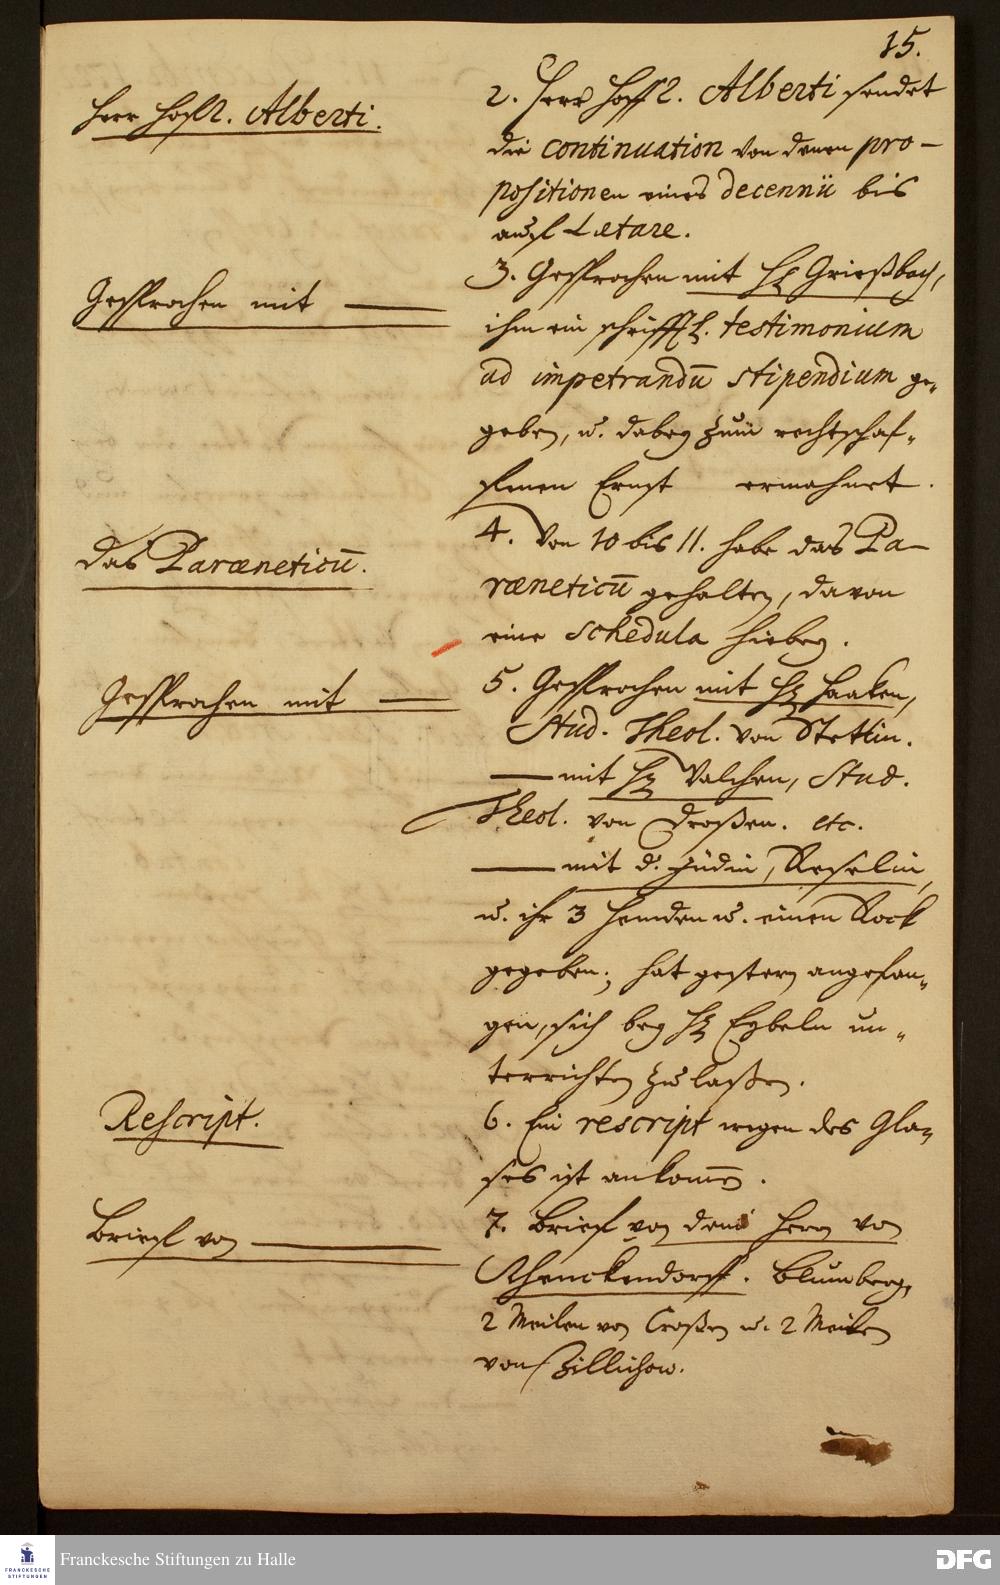 15.
Herr HoffR. Alberti.
2. Herr HoffR. Alberti sendet
die continuation von denen pro-
positionen eines decennii bis
auff Lætare.
Gesprochen mit ———
3. Gesprochen mit H. Grießbach,
ihm ein schrifftl. testimonium
ad impetrandū stipendium ge-
geben, u. dabey zum rechtschaf-
fenen Ernst ermahnet.
das Paræneticū.
4. Von 10 bis 11. habe das Pa-
ræneticū gehalten, davon
eine schedula hiebey.
Gesprochen mit ———
5. Gesprochen mit H. Haaken,
Stud. Theol. von Stettin.
—— mit H. Valchen, Stud.
Theol. von Droßen. etc.
—— mit d. Jüdin, Reselin,
u. ihr 3 Hemden u. einen Rock
gegeben; hat gestern angefan-
gen, sich bey H. Eybeln un-
terrichten zu laßen.
Rescript.
6. Ein rescript wegen des Gla-
ses ist ankom̄en.
Brieff von ———
7. Brieff von dem Herrn von
Schenckendorff. Blumberg,
2 Meilen von Croßen u. 2 Meilen
von Züllichow.
FRANCKESCHE
STIFTUNGEN
Franckesche Stiftungen zu Halle
DFG